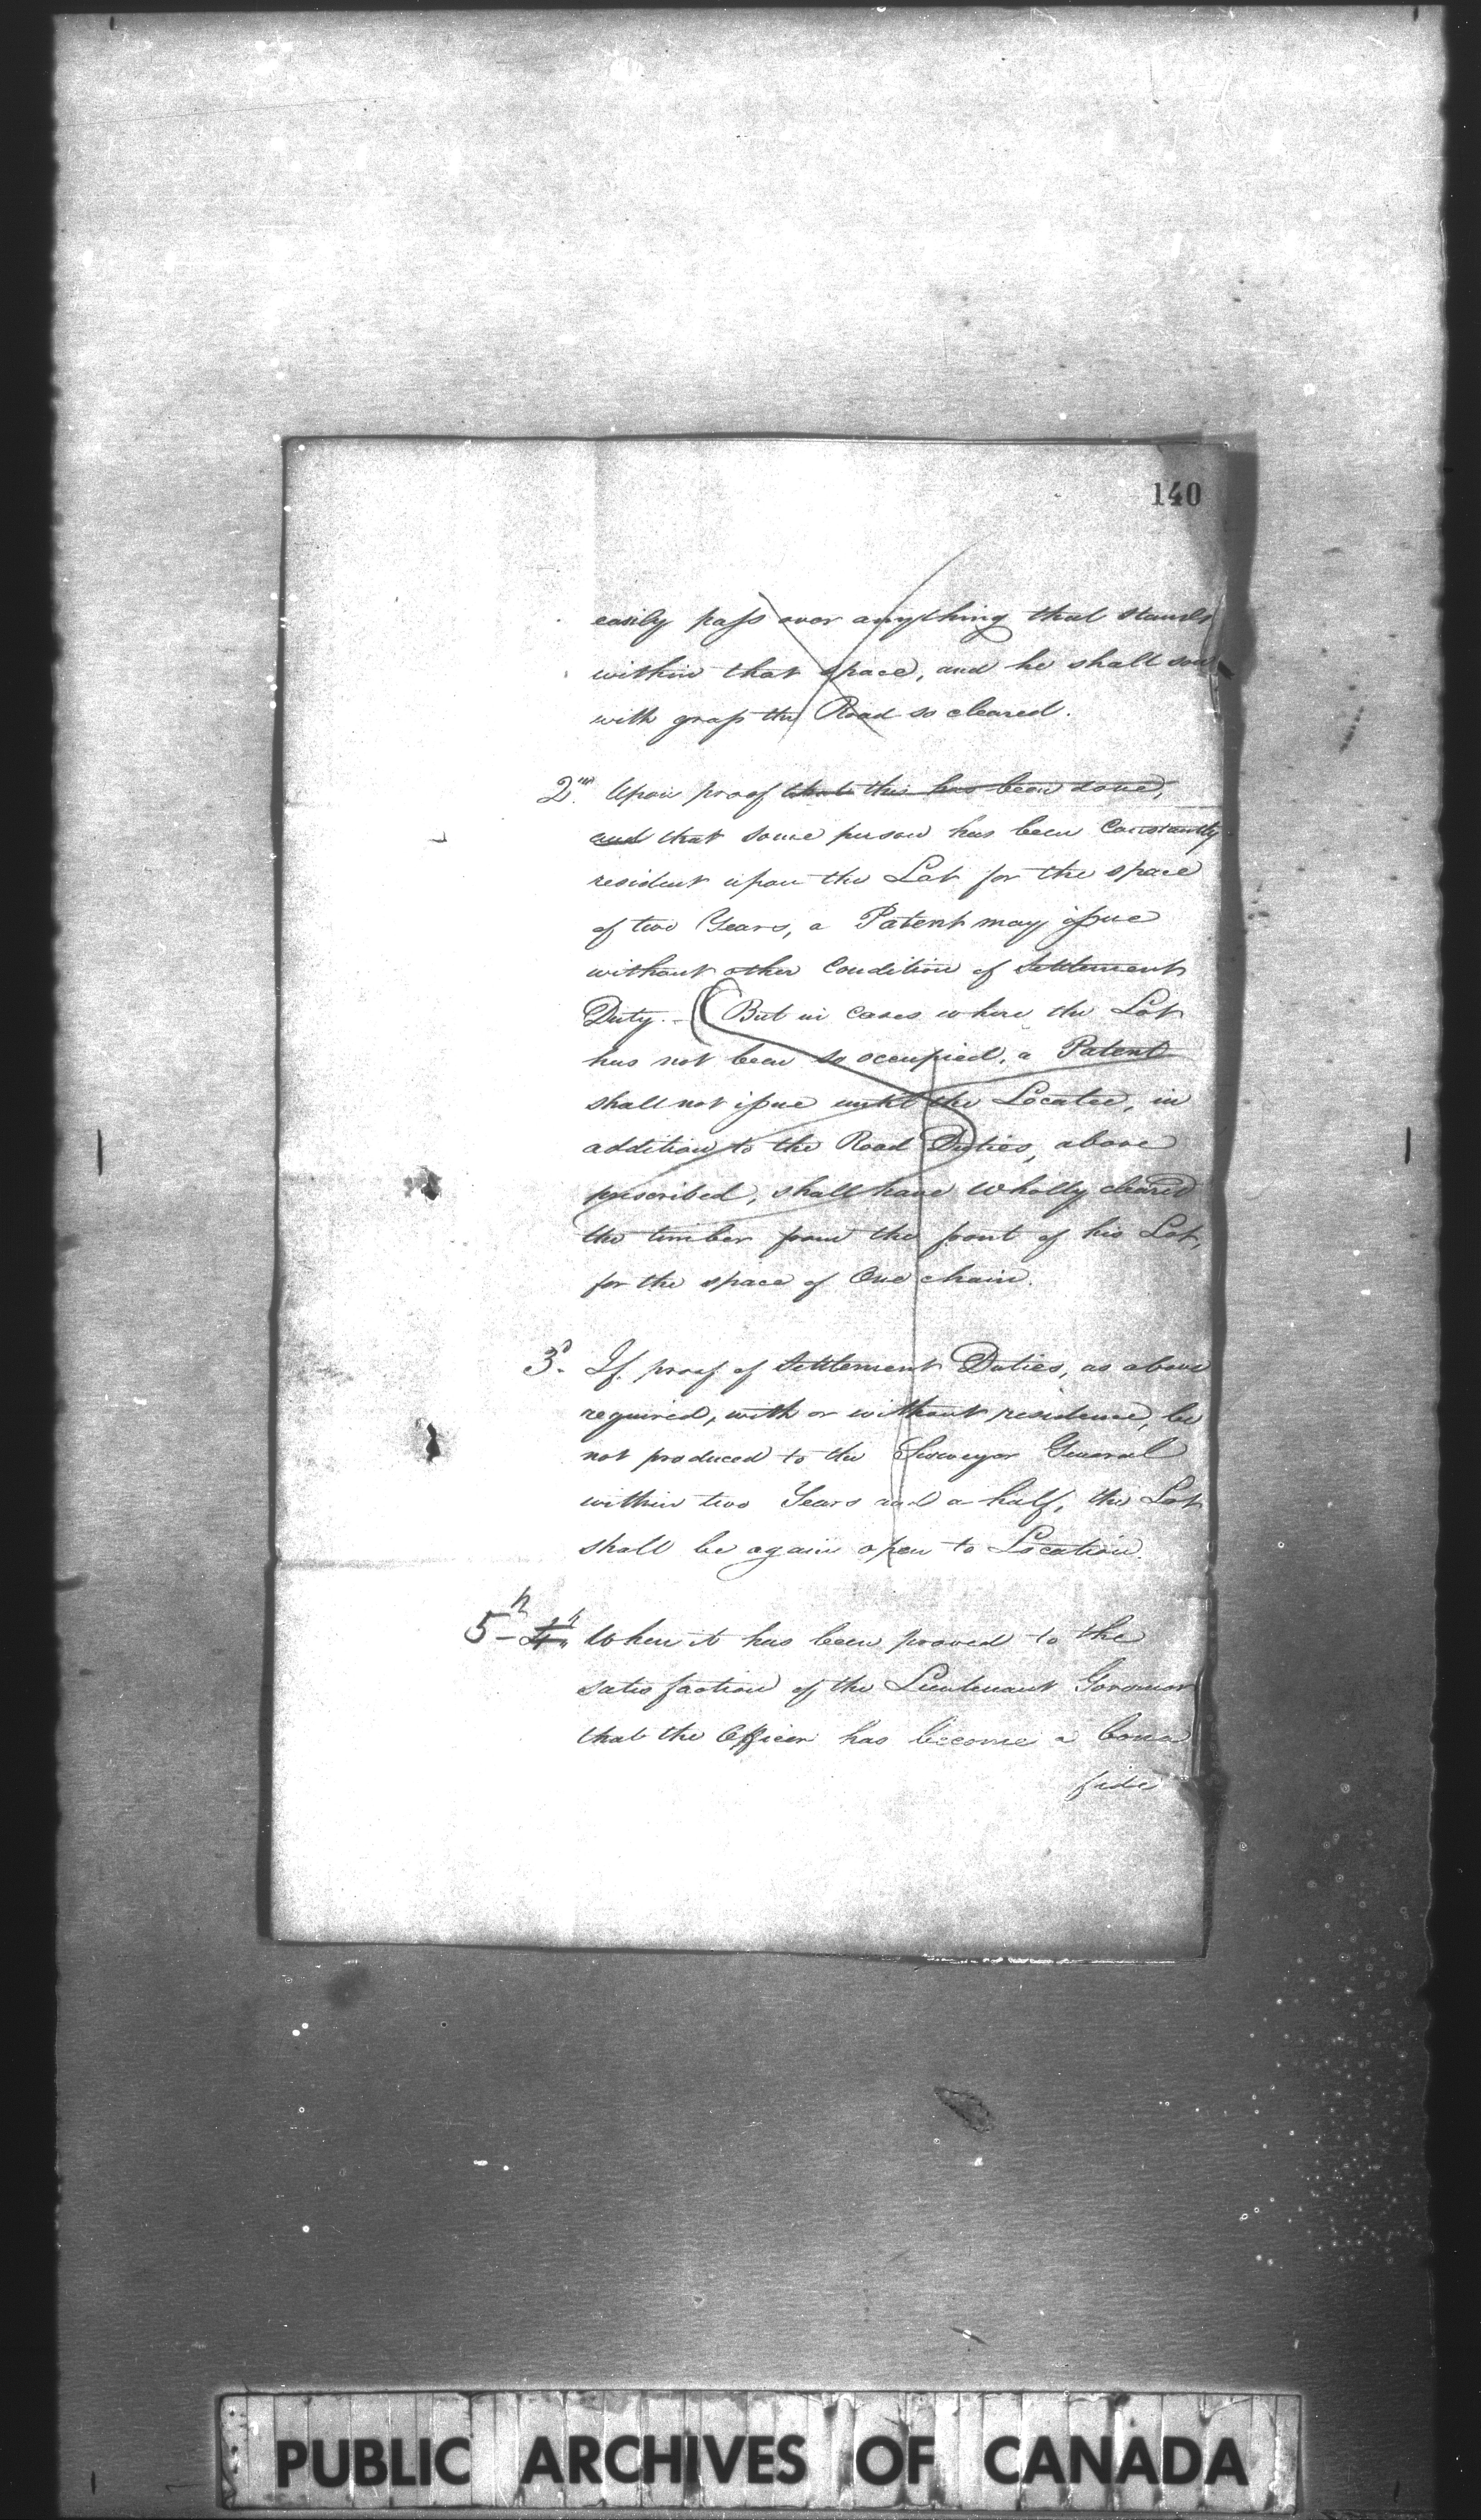 140
easily pass over anything that stands
within that space, and he shall sow
with grass the Road so cleared.
2nd. Upon proof that this has been done,
and that some person has been Constantly
resident upon the Lot for the space
of two Years, a Patent may issue
without other Condition of Settlement
Duty. - (But in Cases where the Lot
has not been so occupied, a Patent
shall not issue until the Locatee, in
addition to the Road Duties, above
prescribed, shall have wholly cleared
the timber from the front of his Lot,
for the space of One chain.
3d. If proof of Settlement Duties, as above
required, with or without residence, be
not produced to the Surveyor General
within two Years and a half, the Lot
shall be again open to Location.
5th 4th. When it has been proved to the
satisfaction of the Lieutenant Governor
that the Officer has become a bona
fide
PUBLIC ARCHIVES OF CANADA